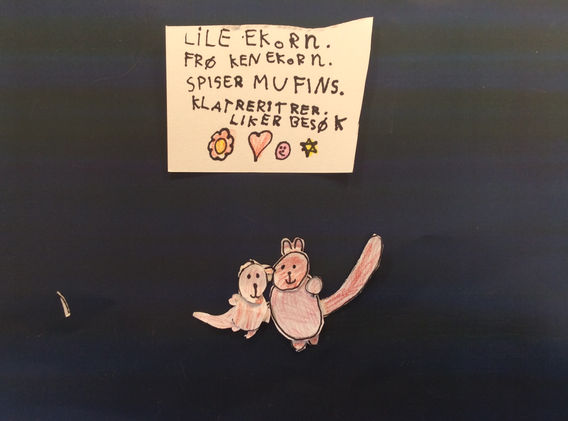 LILE EKORN.
FRØ KEN EKORN.
SPISER MUFINS.
KLATRERITRER.
LIKER BESØK